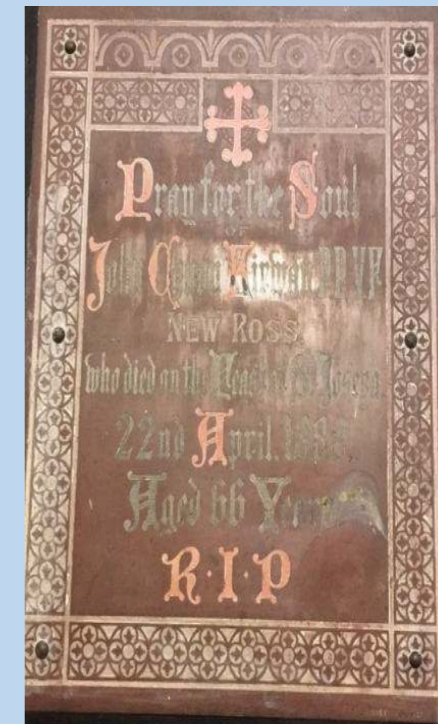 Pray for the Soul
OF
John
NEW ROSS
who died on the Feast of St Joseph.
22nd April.
Aged 66 Years
R·I·P